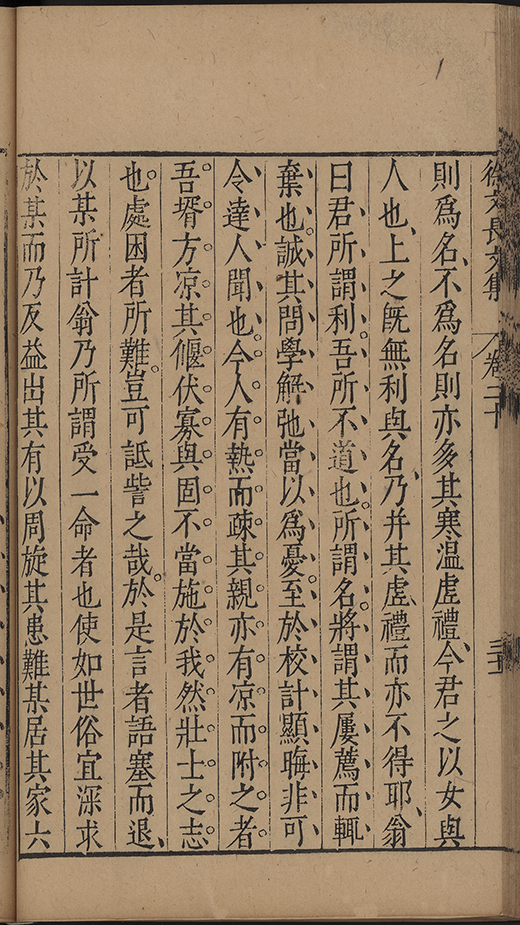 徐文長文集 卷二十
則爲名不爲名則亦多其寒溫虛禮今君之以女與
人也上之旣無利與名乃并其虛禮而亦不得耶翁
曰君所謂利吾所不道也所謂名將謂其屢薦而輒
棄也誠其問學解弛當以爲憂至於校計顯晦非可
令達人聞也今人有熱而疎其親亦有凉而附之者
吾壻方凉其偃伏寡與固不當施於我然壯士之志
也處困者所難豈可詆訾之哉於是言者語塞而退
以某所計翁乃所謂受一命者也使如世俗宜深求
於某而乃反益出其有以周旋其患難某居其家六